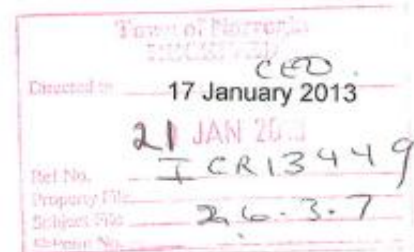 Town of
RECEIVED
Directed to CEO.
17 January 2013
21 JAN 20
Ref No. ICR13449
Property File
Subject File 26.3.7